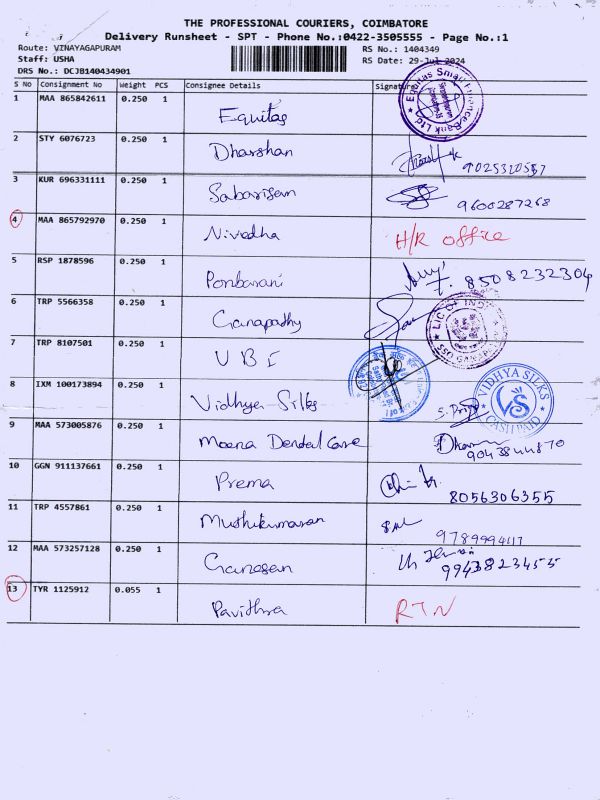 THE PROFESSIONAL COURIERS, COIMBATORE
Delivery Runsheet - SPT - Phone No.:0422-3505555 - Page No.:1
Route: VINAYAGAPURAM RS No.: 1404349
Staff: USHA RS Date: 29-Jul-2024
DRS No.: DCJB140434901
S No Consignment No Weight PCS Consignee Details Signature
1 MAA 865842611 0.250 1 Equitas Equitas Small Finance Bank Ltd
2 STY 6076723 0.250 1 Dharshan
3 KUR 696331111 0.250 1 Sabarisan 9600287268
4 MAA 865792970 0.250 1 Nivedha H/R office
5 RSP 1878596 0.250 1 Ponbarani 8508232304
6 TRP 5566358 0.250 1 Ganapathy LIC OF INDIA
7 TRP 8107501 0.250 1 UBI
8 IXM 100173894 0.250 1 Vidhya Silks VIDHYA SILKS VS CASH PAID
9 MAA 573005876 0.250 1 Meena Dental Care
10 GGN 911137661 0.250 1 Prema 8056306355
11 TRP 4557861 0.250 1 Muthukumaran
12 MAA 573257128 0.250 1 Ganesan 9943823455
13 TYR 1125912 0.055 1 Pavithra RTN